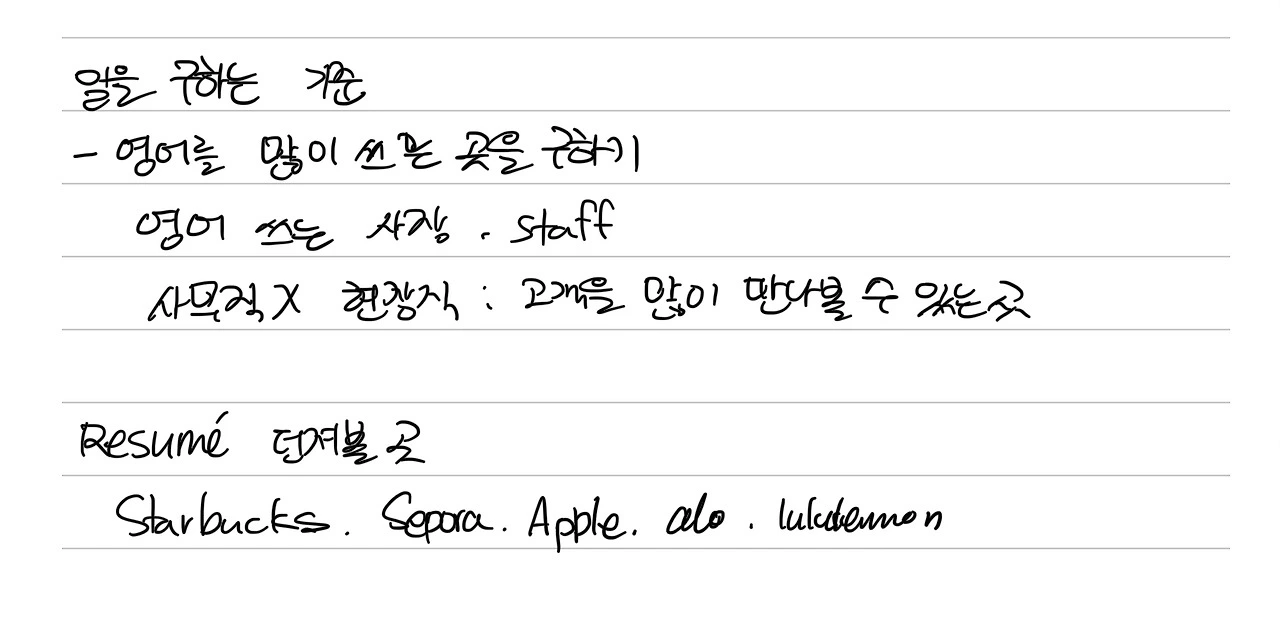 일을 구하는 기준
- 영어를 많이 쓰는 곳을 구하기
영어 쓰는 사장. staff
사무직X 현장직 : 고객을 많이 만나볼 수 있는 곳
Resumé 던져볼 곳
Starbucks. Sepora. Apple. alo.